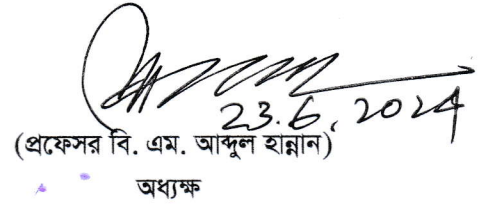 23.6.2024
(প্রফেসর বি. এম. আব্দুল হান্নান)
অধ্যক্ষ